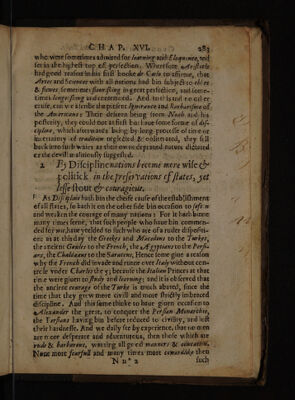 CHAP. XVI. 283
who were sometimes admired for learning and Eloquence, and
set in the highest top of perfection. Wherefore Aristotle
had good reason in his first booke de Cœlo to affirme, that
Artes and Sciences with all nations had bin subject to ebbe
& flowe, sometimes flourishing in great perfection, and some-
times languishing and contemned. And to this and no other
cause, can we ascribe the present Ignorance and Barbarisme of
the Americans: Their descents being from Noah and his
posterity, they could not at first but have some forme of dis-
cipline, which afterwards being by long processe of time or
intertaines of tradition neglected & obliterated, they fell
back into such waies as their own depraved nature dictated
or the devill maliciously suggested.
2 By Discipline nations become more wise &
politick in the preservations of states, yet
lesse stout & couragious.
As Discipline hath bin the cheife cause of the establishment
of all states, so hath it on the other side bin occasion to soften
and weaken the courage of many nations: For it hath binne
many times seene, that such people who have bin commen-
ded for wit, have yeelded to such who are of a ruder dispositi-
on: as at this day the Greekes and Macedons to the Turkes,
the ancient Gaules to the French, the Ægyptians to the Persi-
ans, the Chaldæans to the Saracins, Hence some give a reason
why the French did invade and runne over Italy without con-
trole under Charles the 8; because the Italian Princes at that
time were given to study and learning: and it is observed that
the ancient courage of the Turke is much abated, since the
time that they grew more civill and more strictly imbraced
discipline. And this same thinke to have given occasion to
Alexander the great, to conquer the Persian Monarchie,
the Persians having bin before reduced to civility, and lost
their hardnesse. And we daily see by experience, that no men
are more desperate and adventurous, then those which are
rude & barbarous, wanting all good manners & education.
None more fearfull and many times more cowardise then
N n* 2 such